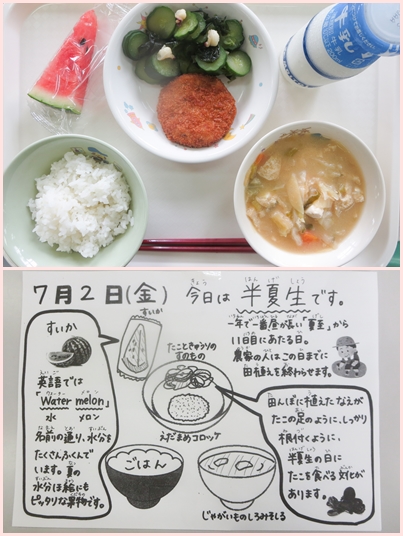 7月2日(金) 今日は 半夏生です。
きょう はんげしょう
一年で一番昼が長い「夏至」から
11日目にあたる日。
農家の人はこの日までに
田植えを終わらせます。
すいか
英語では
「Water melon」
ウォーター メロン
水 メロン
名前の通り、水分を
たくさんふくんで
います。夏の
水分ほ給にも
ピッタリな果物です。
すいか
たことキュウリの
すのもの
えだまめコロッケ
ごはん
じゃがいものしろみそしる
田んぼに植えたなえが
たこの足のように、しっかり
根付くように、
半夏生の日に
たこを食べる文化が
あります。